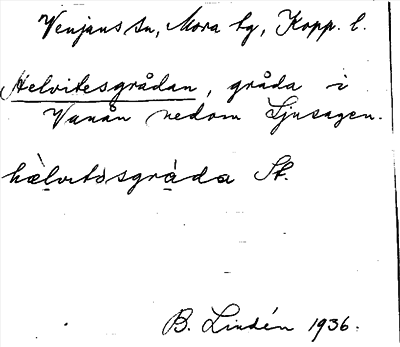 Venjans sn, Mora tg, Kopp. l.
Helvitesgrådan, gråda i
Vanån nedom Ljusagen.
hælvitəsgràda St.
B. Lindén 1936.